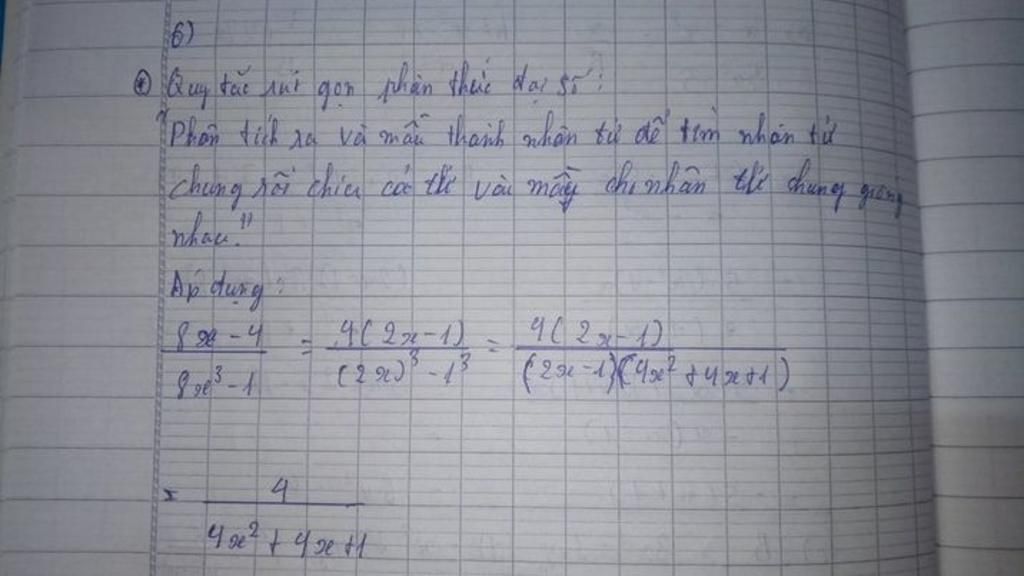 6)
* Quy tắc rút gọn phân thức đại số:
"Phân tích ra và mẫu thành nhân tử để tìm nhân tử
chung rồi chia cả tử và mẫu cho nhân tử chung giống
nhau."
Áp dụng:
8x - 4 / 8x³ - 1 = 4(2x - 1) / (2x)³ - 1³ = 4(2x - 1) / (2x - 1)(4x² + 4x + 1)
= 4 / 4x² + 4x + 1